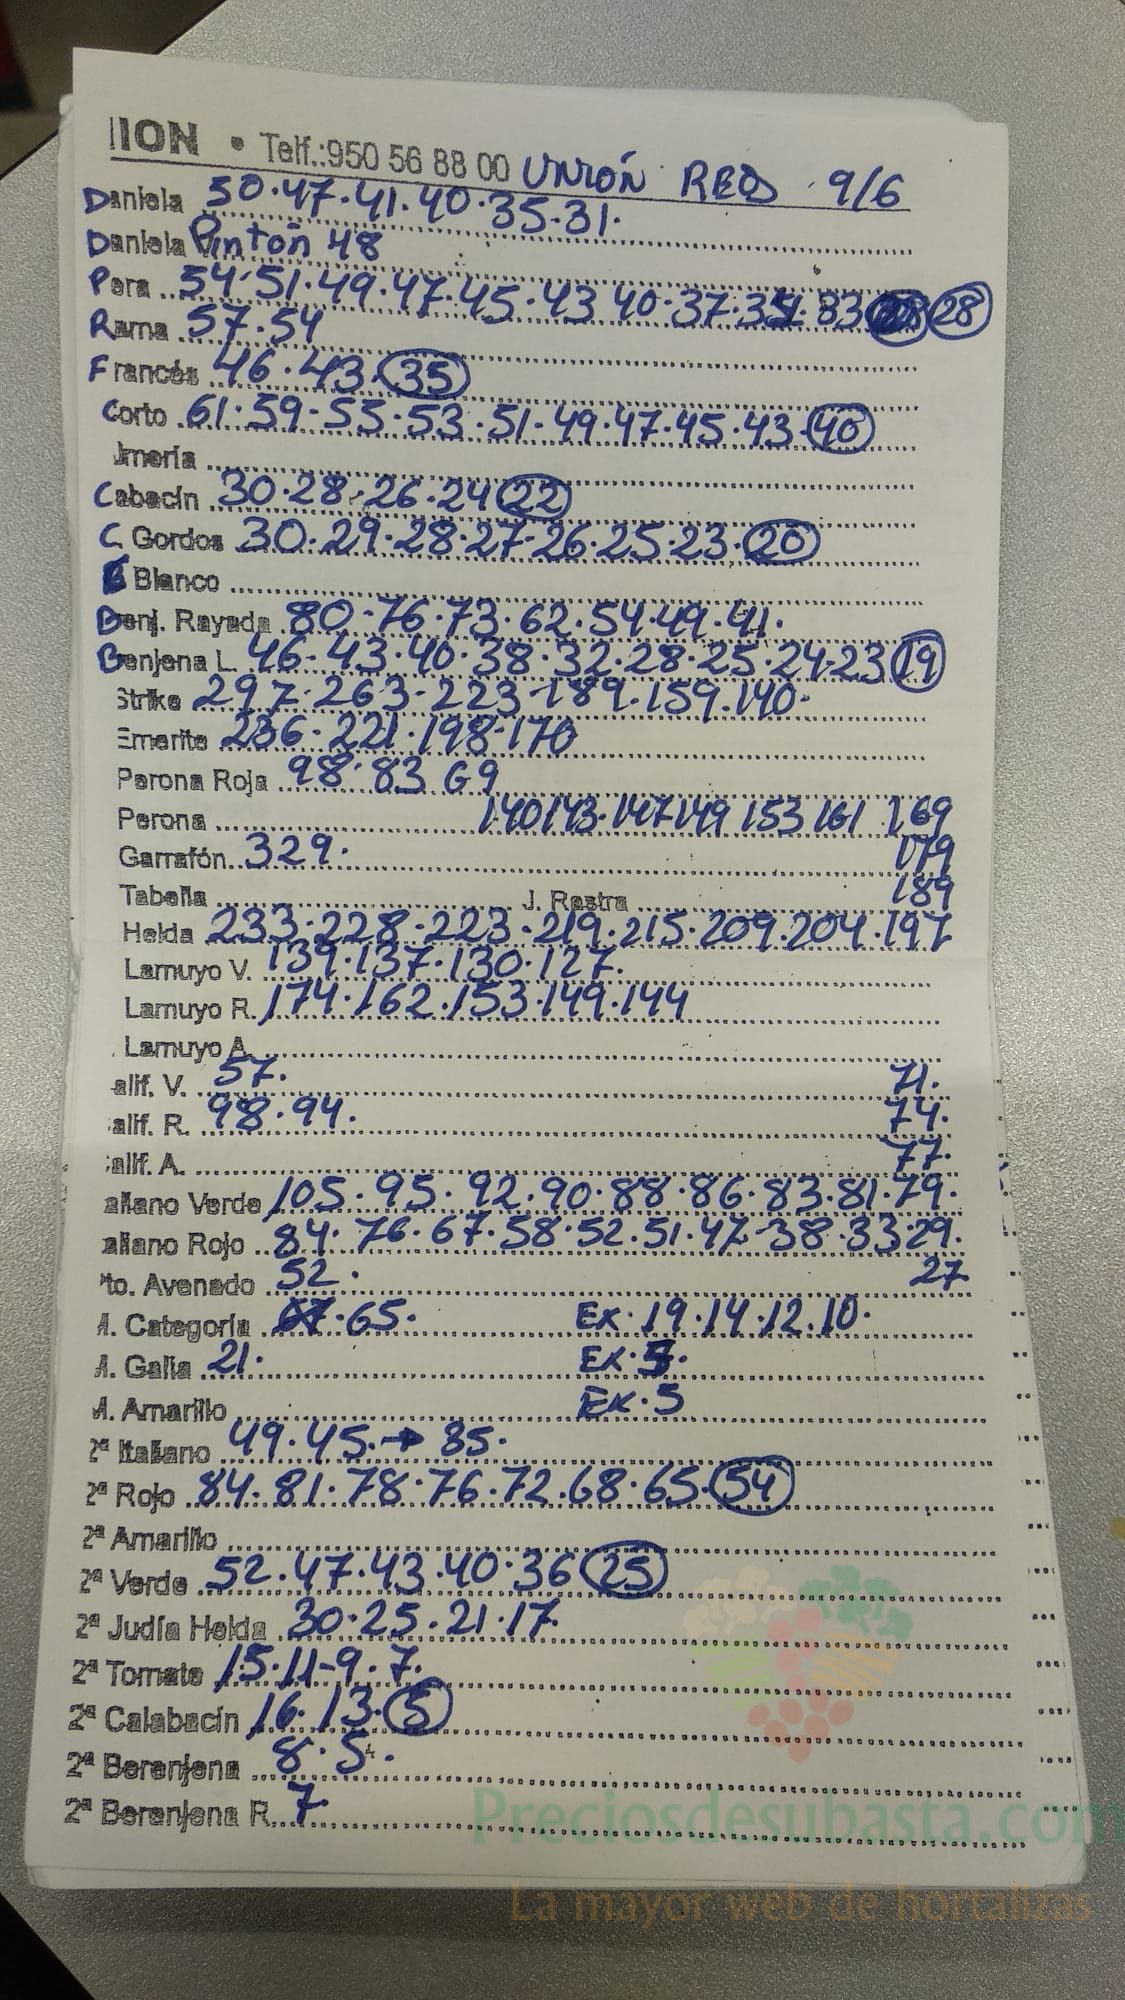 IION • Telf.:950 56 88 00 UNIÓN RED 9/6
Daniela 50.47.41.40.35.31.
Daniela Pintón 48
Pera 54.51.49.47.45.43 40.37.34.33 28
Rama 57.54
Francés 46.43.35
Corto 61.59.55.53.51.49.47.45.43.40
lmería
Cabacín 30.28.26.24 22
C. Gordos 30.29.28.27.26.25.23.20
Blanco
Benj. Rayada 80.76.73.62.54.49.41.
Benjena L. 46.43.40.38.32.28.25.24.23 19
Strike 297.263.223.189.159.140.
Emerite 236.221.198.170
Perona Roja 98.83 69
Perona 140 143.147 149 153 161 169
Garrafón 329. 179
Tabella J. Rastra 189
Helda 233.228.223.219.215.209.204.197
Lamuyo V. 139.137.130.127.
Lamuyo R. 174.162.153.149.144
Lamuyo A.
alif. V. 57. 71.
alif. R. 98.94. 74.
alif. A. 77.
aliano Verde 105.95.92.90.88.86.83.81.79.
aliano Rojo 84.76.67.58.52.51.47.38.33.29.
to. Avenado 52. 27
M. Categoría 65. Ex.19.14.12.10.
M. Galia 21. Ex.
M. Amarillo Ex.5
2ª Italiano 49.45.→35.
2ª Rojo 84.81.78.76.72.68.65.54
2ª Amarillo
2ª Verde 52.47.43.40.36 25
2ª Judía Helda 30.25.21.17.
2ª Tomate 15.11-9.7.
2ª Calabacín 16.13.5
2ª Berenjena 8.5.
2ª Berenjena R. 7
Preciosdesubasta.com
La mayor web de hortalizas